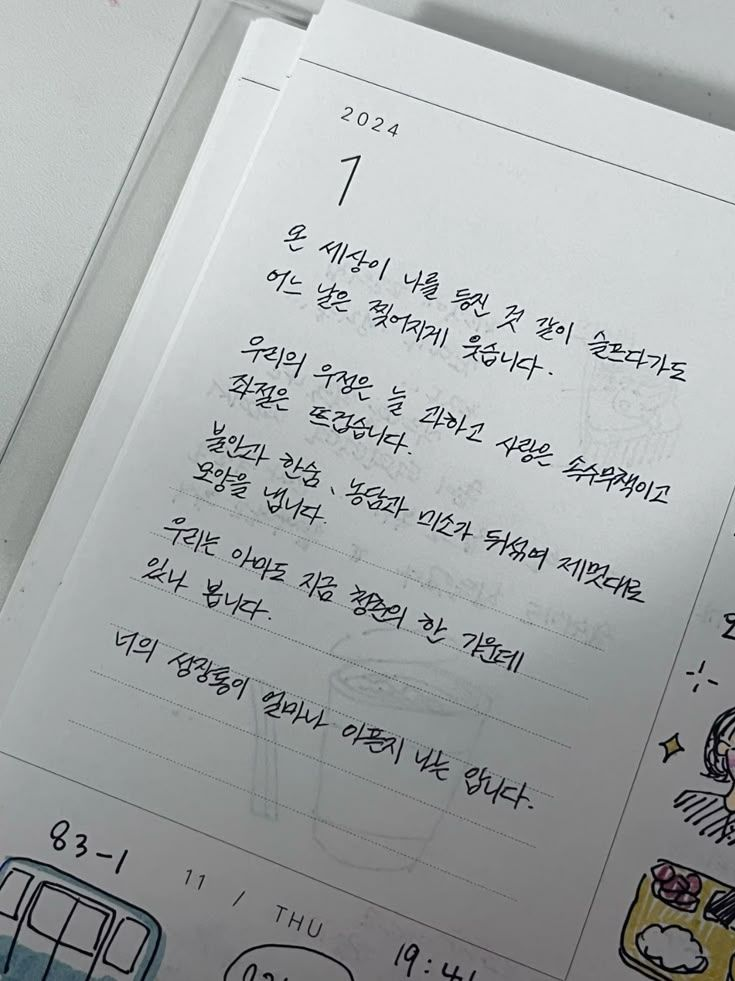 2024
1
온 세상이 나를 등진 것 같이 슬프다가도
어느 날은 찢어지게 웃습니다.
우리의 우정은 늘 과하고 사랑은 속수무책이고
좌절은 뜨겁습니다.
불안과 한숨、농담과 미소가 뒤섞여 제멋대로
모양을 냅니다.
우리는 아마도 지금 청춘의 한 가운데
있나 봅니다.
너의 성장통이 얼마나 아픈지 나는 압니다.
83-1
11 / THU
19:41